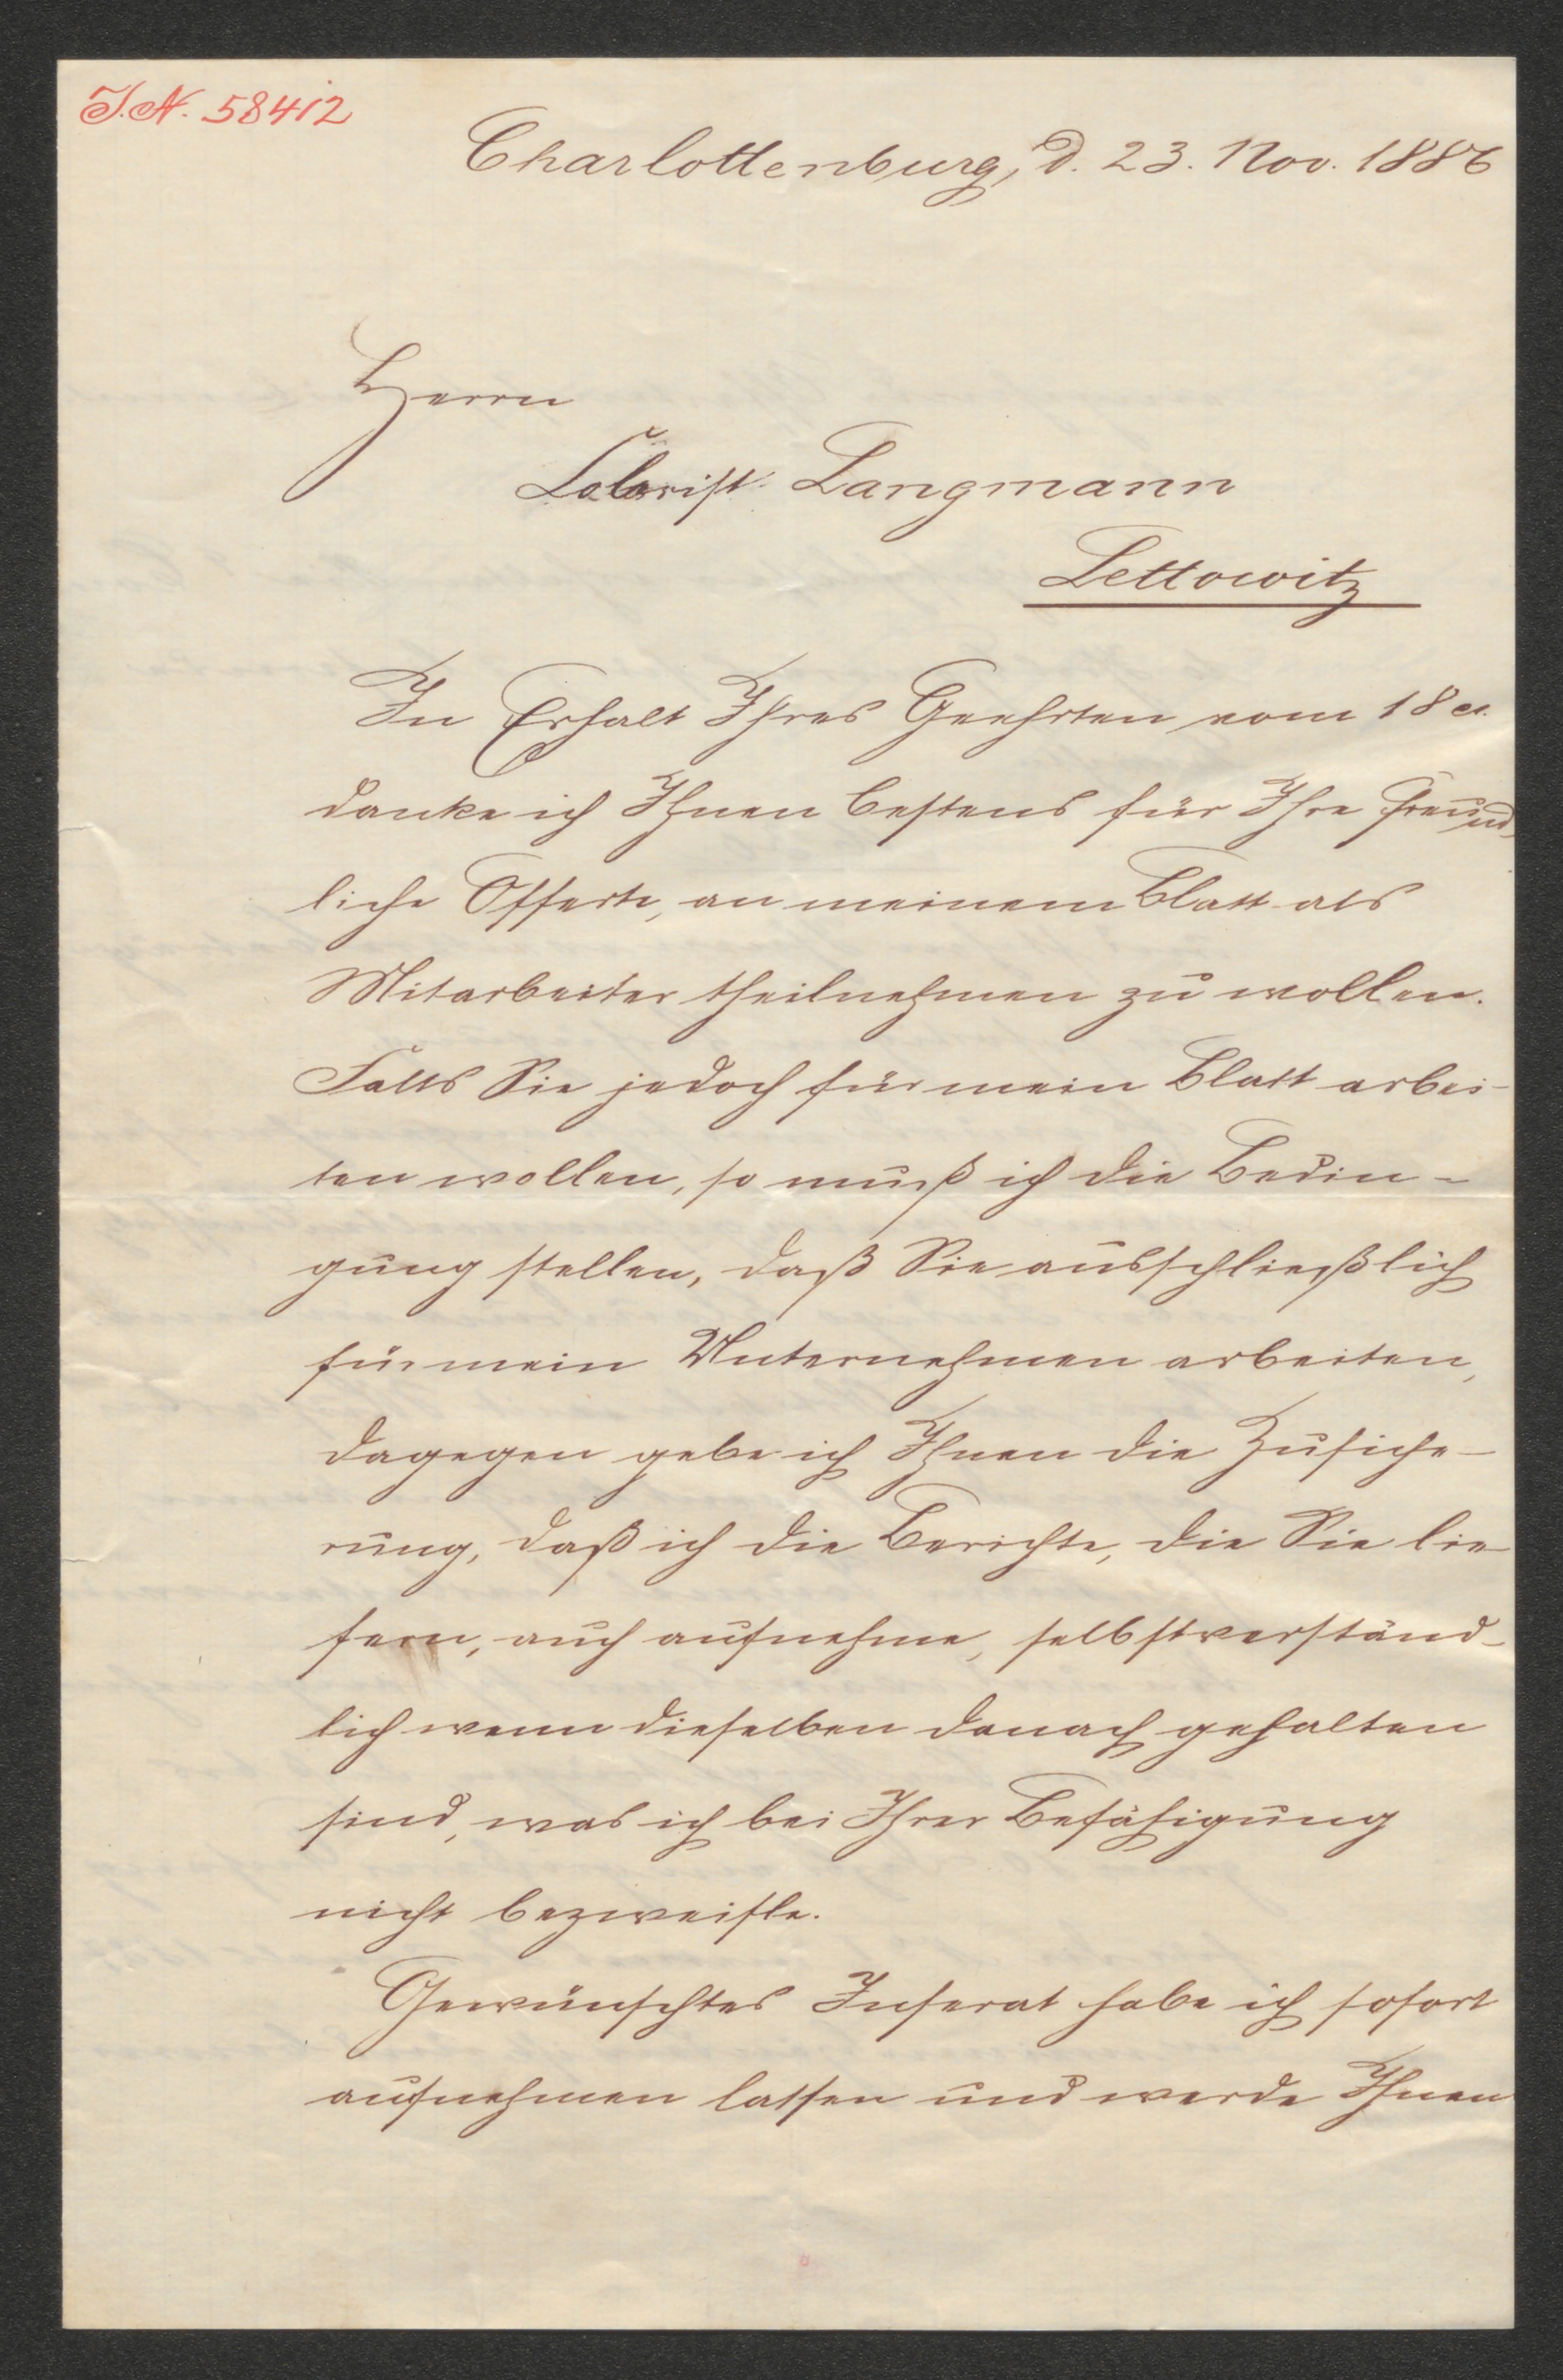 I.N. 58412
Charlottenburg, d. 23. Nov. 1886
Herrn
Colorist Langmann
Lettowitz
In Erhalt Ihres Geehrten vom 18 cr.
danke ich Ihnen bestens für Ihre freund-
liche Offerte, an meinem Blatt als
Mitarbeiter theilnehmen zu wollen.
Falls Sie jedoch für mein Blatt arbei-
ten wollen, so muß ich die Bedin-
gung stellen, daß Sie ausschließlich
für mein Unternehmen arbeiten,
dagegen gebe ich Ihnen die Zusiche-
rung, daß ich die Berichte, die Sie lie-
fern, auch aufnehme, selbstverständ-
lich wenn dieselben danach gehalten
sind, was ich bei Ihrer Befähigung
nicht bezweifle.
Gewünschtes Inserat habe ich sofort
aufnehmen lassen und werde Ihnen